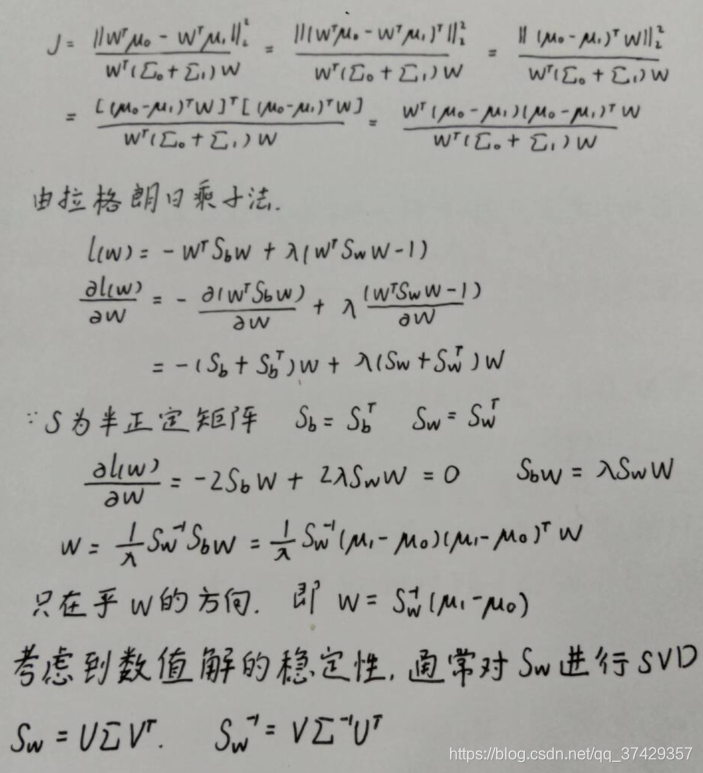 J = ||Wᵀμ₀ - Wᵀμ₁||₂² / Wᵀ(Σ₀ + Σ₁)W = ||(Wᵀμ₀ - Wᵀμ₁)ᵀ||₂² / Wᵀ(Σ₀ + Σ₁)W = ||(μ₀-μ₁)ᵀW||₂² / Wᵀ(Σ₀ + Σ₁)W
= [(μ₀-μ₁)ᵀW]ᵀ[(μ₀-μ₁)ᵀW] / Wᵀ(Σ₀ + Σ₁)W = Wᵀ(μ₀-μ₁)(μ₀-μ₁)ᵀW / Wᵀ(Σ₀ + Σ₁)W
由拉格朗日乘子法.
l(w) = -WᵀS_bW + λ(WᵀS_wW-1)
∂l(w)/∂W = - ∂(WᵀS_bW)/∂W + λ (WᵀS_wW-1)/∂W
= -(S_b + S_bᵀ)W + λ(S_w + S_wᵀ)W
∵S为半正定矩阵 S_b = S_bᵀ S_w = S_wᵀ
∂l(w)/∂W = -2S_bW + 2λS_wW = 0 S_bW = λS_wW
W = 1/λ S_w⁻¹S_bW = 1/λ S_w⁻¹(μ₁-μ₀)(μ₁-μ₀)ᵀW
只在乎W的方向. 即 W = S_w⁻¹(μ₁-μ₀)
考虑到数值解的稳定性, 通常对S_w进行SVD
S_w = UΣVᵀ. S_w⁻¹ = VΣ⁻¹Uᵀ
https://blog.csdn.net/qq_37429357